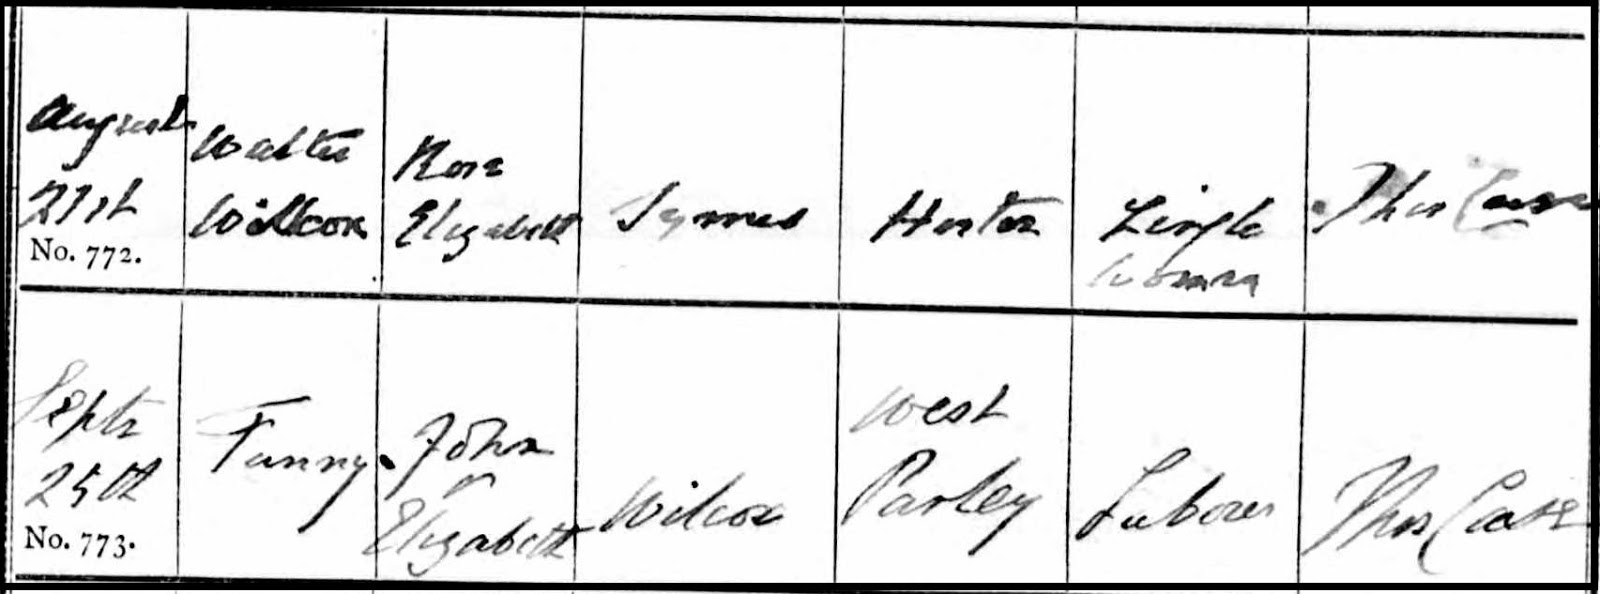 August
21st
No. 772.
Walter
Willcox
Rose
Elizabeth
Symes
Single
Woman
Thos
Septr
25th
No. 773.
Fanny
John
&
Elizabeth
Wilcox
West
Parley
Labourer
Thos Cass